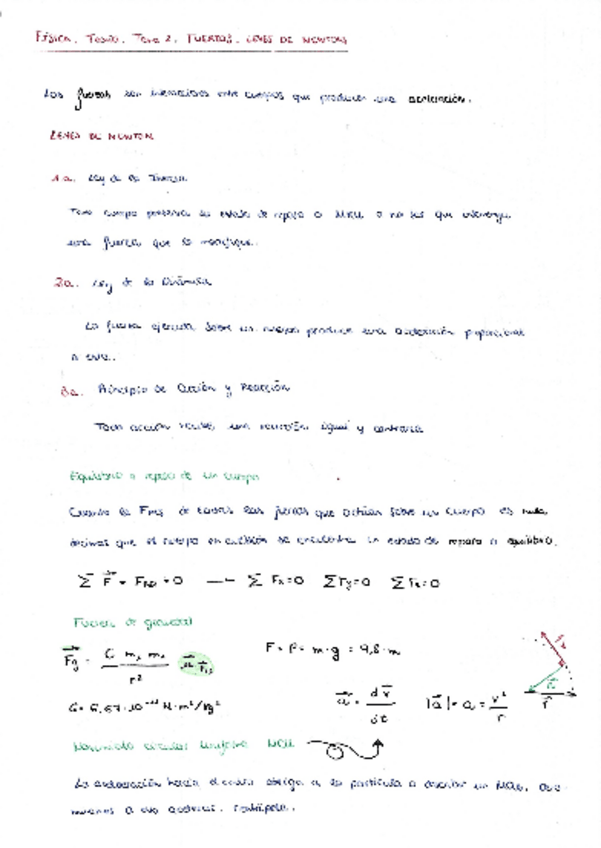 FÍSICA. TEORÍA. TEMA 2. FUERZAS. LEYES DE NEWTON
Las fuerzas son interacciones entre cuerpos que producen una aceleración.
LEYES DE NEWTON
1a. Ley de la Inercia
Todo cuerpo preserva su estado de reposo o MRU a no ser que intervenga
una fuerza que lo modifique.
2a. Ley de la Dinámica
La fuerza ejercida sobre un cuerpo produce una aceleración proporcional
a esta.
3a. Principio de Acción y Reacción
Toda acción recibe una reacción igual y contraria
Equilibrio o reposo de un cuerpo
Cuando la de todas las fuerzas que actúan sobre un cuerpo es nula,
decimos que el cuerpo en cuestión se encuentra en estado de reposo o equilibrio.
Σ F = = 0 — Σ Fx = 0 Σ Fy = 0 Σ Fz = 0
Fuerza de gravedad
Fg = G m1 m2 / r² F = P = m · g = 9,8 · m
G = 6,67 · 10⁻¹¹ N · m²/kg² a = dv/dt |a| = a = v²/r r
Movimiento circular uniforme MCU
La aceleración hacia el centro obliga a la partícula a describir un MCU.
a centrípeta.